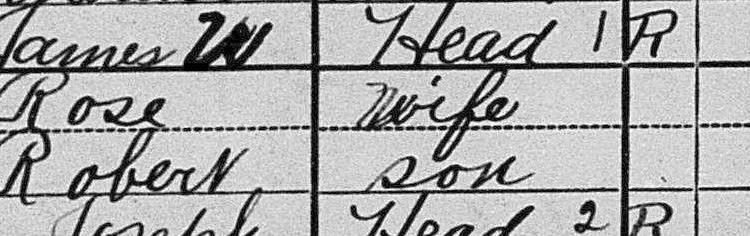 James W Head 1 R
Rose Wife
Robert son
Joseph Head 2 R